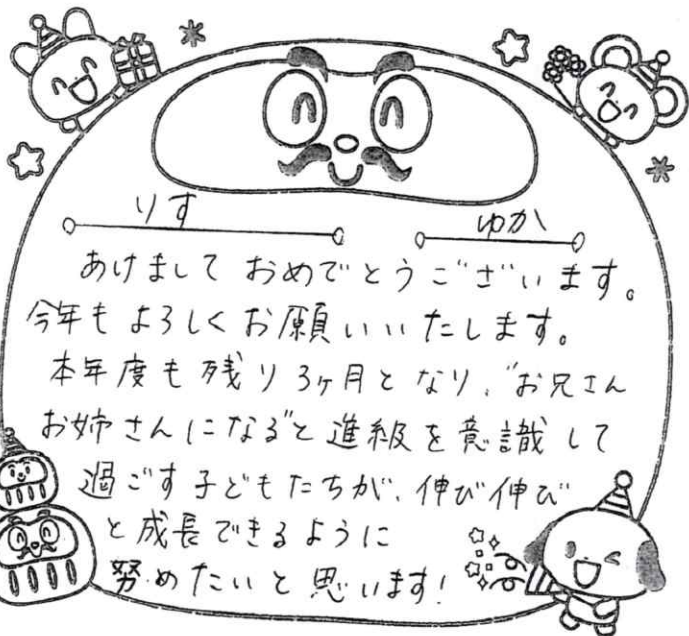 りす ゆか
あけまして おめでとうございます。
今年もよろしくお願いいたします。
本年度も残り3ヶ月となり、“お兄さん
お姉さんになる”と進級を意識して
過ごす子どもたちが、伸び伸び
と成長できるように
努めたいと思います!